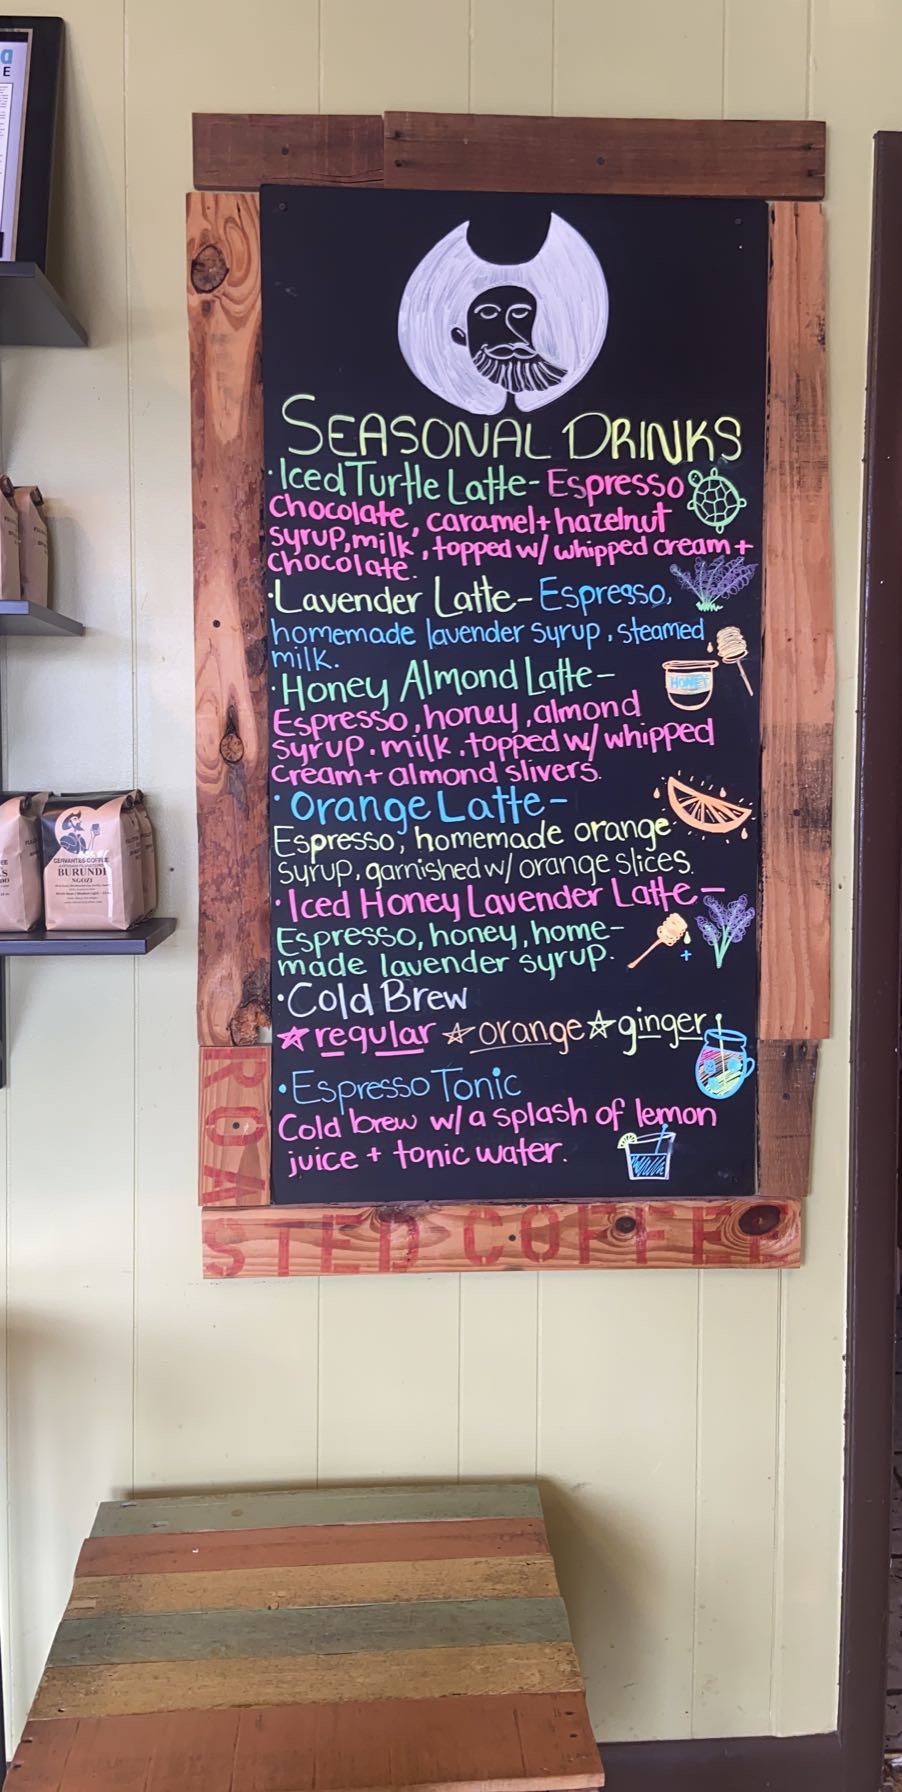 a
E
SEASONAL DRINKS
·Iced Turtle Latte- Espresso
Chocolate, caramel + hazelnut
syrup, milk, topped w/ whipped cream +
chocolate.
·Lavender Latte- Espresso,
homemade lavender syrup, steamed
milk.
·Honey Almond Latte-
HONEY
Espresso, honey, almond
syrup. milk. topped w/ whipped
cream + almond slivers.
·Orange Latte-
Espresso, homemade orange
syrup, garnished w/ orange slices.
·Iced Honey Lavender Latte-
Espresso, honey, home-
made lavender syrup.
+
·Cold Brew
☆regular ☆orange ☆ginger
·Espresso Tonic
Cold brew w/ a splash of lemon
juice + tonic water.
ROASTED COFFEE
CERVANTES COFFEE
BURUNDI
NGOZI